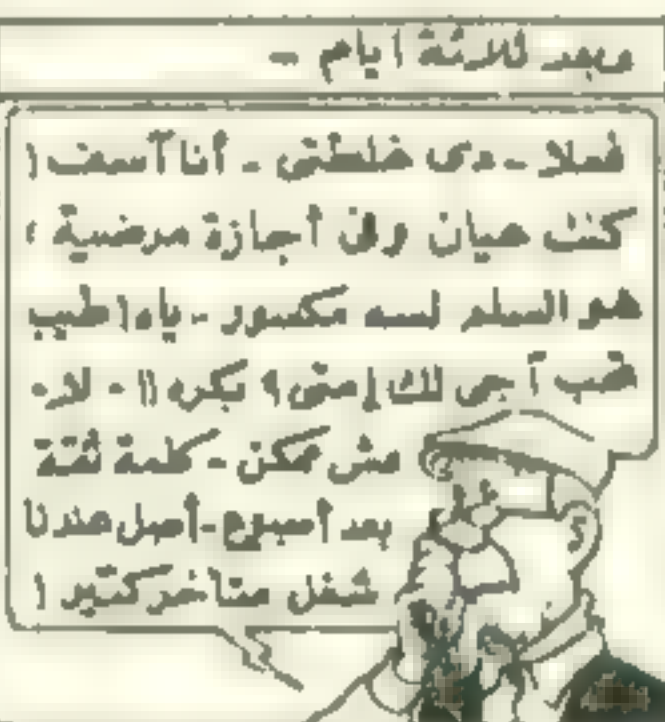 وبعد ثلاثة أيام -
فعلا - دى غلطتى - أنا آسف!
كنت عيان وفى أجازة مرضية،
هو السلم لسه مكسور - ياه! طيب
تحب آجى لك إمتى؟ بكره!! - لا..
مش ممكن - كلمة ثقة
بعد أسبوع - أصل عندنا
شغل متأخر كتير!